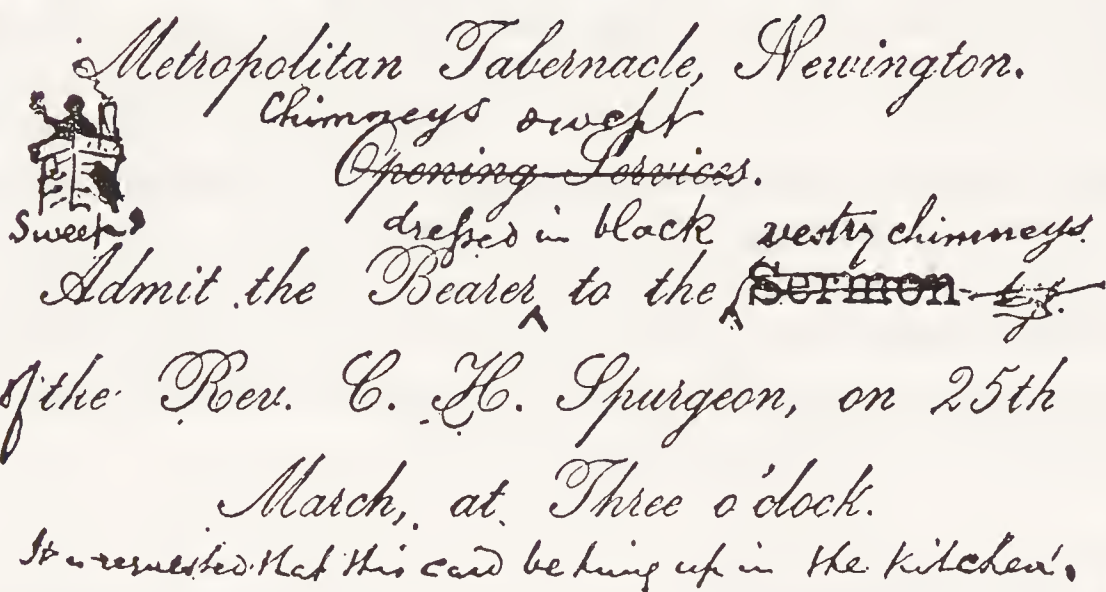 Metropolitan Tabernacle, Newington.
Chimneys swept
Opening Services.
Sweep
dressed in black vestry chimneys.
Admit the Bearer to the Sermon by
of the Rev. C. H. Spurgeon, on 25th
March, at Three o'clock.
It is requested that this card be hung up in the Kitchen.